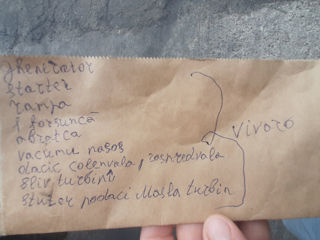 Jhenerator
starter
rampa
1 forsuncă
obratca
vacumu nasos
dacic colenvala, rospredvala
sliv turbinî
stuțer podaci Masla turbin
Vivaro